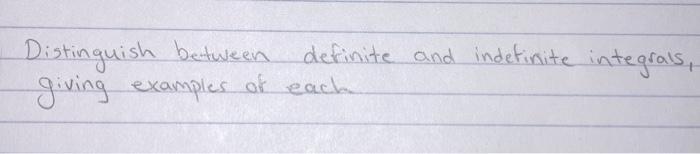 Distinguish between definite and indefinite integrals,
giving examples of each